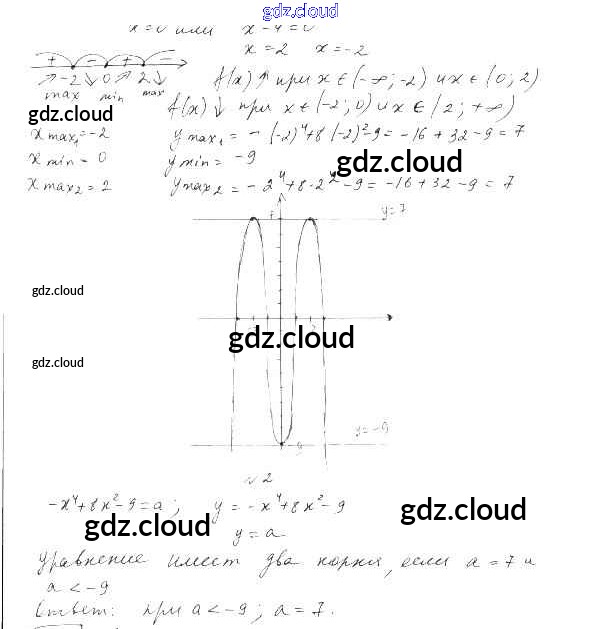 gdz.cloud
x=0 или x-4=0
x=2 x=-2
+ - + -
↗ -2 ↘ 0 ↗ 2 ↘
max min max
f(x)↑ при x∈(-∞;-2) и x∈(0;2)
gdz.cloud
f(x)↓ при x∈(-2;0) и x∈(2;+∞)
x max₁=-2 y max₁=-(-2)⁴+8(-2)²-9=-16+32-9=7
x min=0 y min=-9
gdz.cloud
x max₂=2 y max₂=-2⁴+8·2²-9=-16+32-9=7
y=7
gdz.cloud
gdz.cloud
gdz.cloud
y=-9
-9
№2
-x⁴+8x²-9=a; y=-x⁴+8x²-9
gdz.cloud
gdz.cloud
y=a
Уравнение имеет два корня, если a=7 и
a<-9
Ответ: при a<-9; a=7.